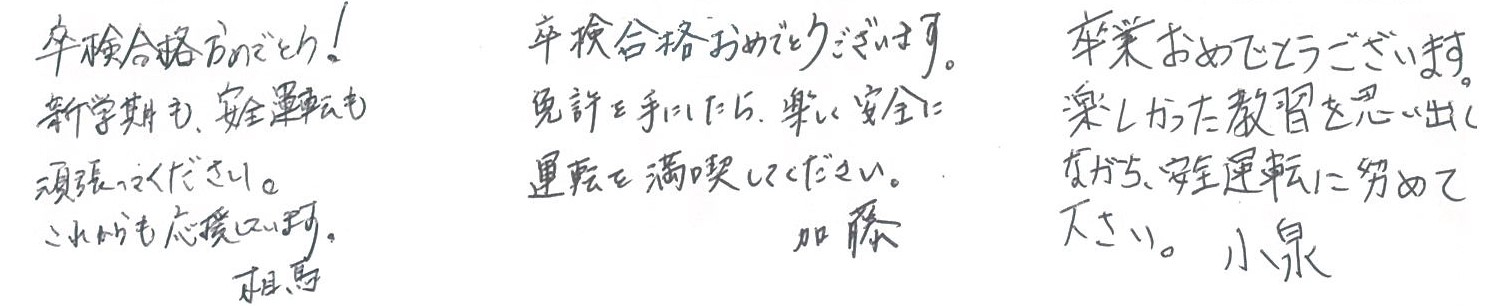 卒検合格おめでとう!
新学期も、安全運転も
頑張ってください。
これからも応援しています。
相馬
卒検合格おめでとうございます。
免許を手にしたら、楽しく安全に
運転を満喫してください。
加藤
卒業おめでとうございます。
楽しかった教習を思い出し
ながら、安全運転に努めて
下さい。 小泉